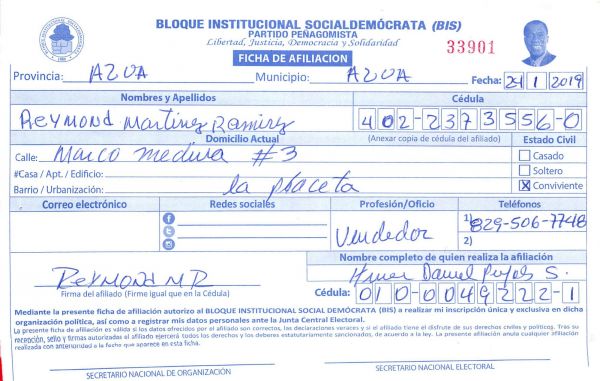 BLOQUE INSTITUCIONAL SOCIALDEMÓCRATA (BIS)
PARTIDO PEÑAGOMISTA
Libertad, Justicia, Democracia y Solidaridad
FICHA DE AFILIACION
33901
Provincia: AZUA Municipio: AZUA Fecha: 24 1 2019
Nombres y Apellidos Cédula
Reymond Martinez Ramirez 402-2373556-0
Domicilio Actual (Anexar copia de cédula del afiliado) Estado Civil
Calle: Marco medina #3 Casado
#Casa / Apt. / Edificio: Soltero
Barrio / Urbanización: la placeta X Conviviente
Correo electrónico Redes sociales Profesión/Oficio Teléfonos
Vendedor 1) 829-506-7748
2)
Nombre completo de quien realiza la afiliación
Reymond MR Daniel S.
Firma del afiliado (Firme igual que en la Cédula) Cédula: 010-0049222-1
Mediante la presente ficha de afiliación autorizo al BLOQUE INSTITUCIONAL SOCIALDEMÓCRATA (BIS) a realizar mi inscripción única y exclusiva en dicha
organización política, así como a registrar mis datos personales ante la Junta Central Electoral.
La presente ficha de afiliación es válida si los datos ofrecidos por el afiliado son correctos, las declaraciones veraces y si el afiliado tiene el disfrute de sus derechos civiles y políticos. Tras su
recepción, sello y firmas autorizadas el afiliado ejercerá todos los derechos y los deberes estatutariamente sancionados, de acuerdo a la ley. La presente afiliación anula cualquier afiliación
realizada con anterioridad a la fecha que aparece en esta ficha.
SECRETARIO NACIONAL DE ORGANIZACIÓN SECRETARIO NACIONAL ELECTORAL